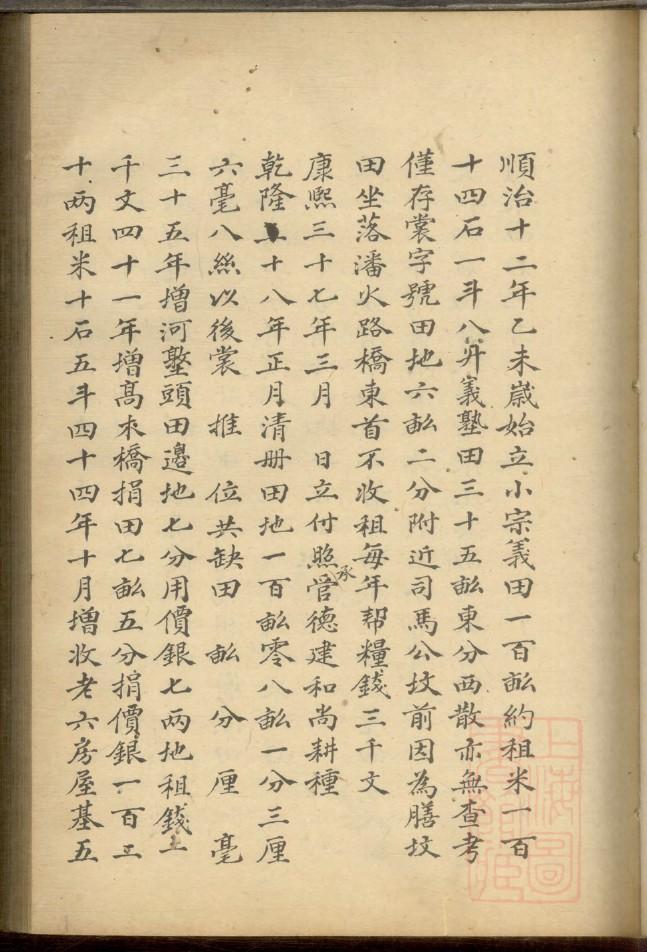 順治十二年乙未歲始立小宗義田一百畝約租米一百
十四石一斗八升義塾田三十五畝東分西散亦無查考
僅存裳字號田地六畝二分附近司馬公坟前因為膳坟
田坐落潘火路橋東首不收租每年帮糧錢三千文
康熙三十七年三月 日立付照管承德建和尚耕種
乾隆 十八年正月清册田地一百畝零八畝一分三厘
六毫八絲以後裳 推 位共缺田 畝 分 厘 毫
三十五年增河墼頭田邊地七分用價銀七兩地租錢
千文四十一年增高木橋捐田七畝五分捐價銀一百
十两租米十石五斗四十四年十月增收老六房屋基五
上海圖書館藏